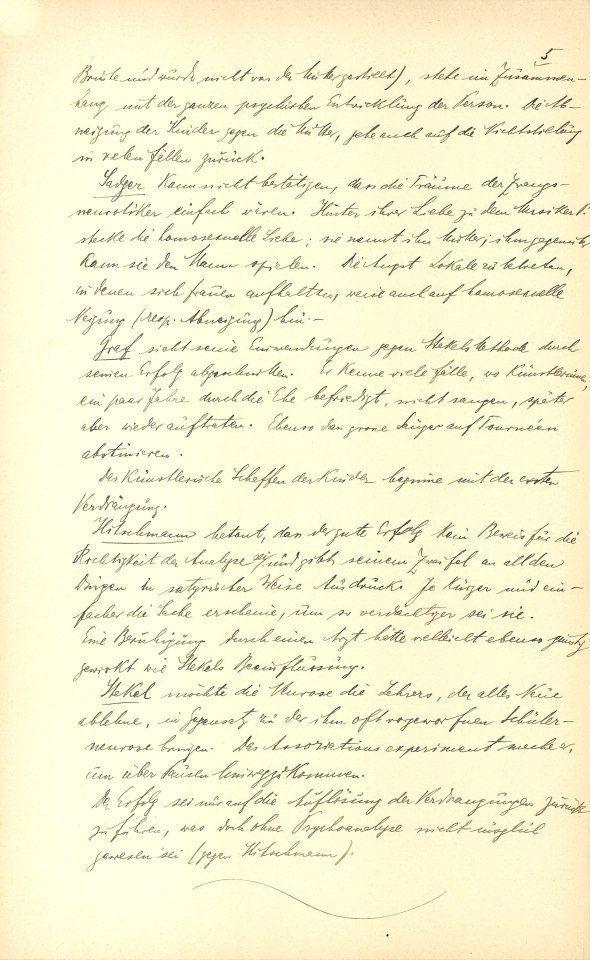 5
Brüste und wurde nicht von der Mutter gestillt), stehe im Zusammen-
hang mit der ganzen psychischen Entwicklung der Person. Die Ab-
neigung der Kinder gegen die Mutter, gehe auch auf die Nichtstillung
in vielen Fällen zurück.
Sadger kann nicht bestätigen, dass die Träume der Zwangs-
neurotiker einfach wären. Hinter ihrer Liebe zu dem Musiker
stecke die homosexuelle Liebe; sie nennt ihn Mutter; ihm gegenüber
kann sie den Mann spielen. Die Angst Lokale zu betreten,
in denen sich Frauen aufhalten, weise auch auf homosexuelle
Neigung (resp. Abneigung) hin.-
Graf sieht seine Einwendungen gegen Stekels Methode durch
seinen Erfolg abgeschwächt. Er kenne viele Fälle, wo Künstlerinnen,
ein paar Jahre durch die Ehe befriedigt, nicht sangen, später
aber wieder auftraten. Ebenso dass grosse Sänger auf Tourneen
abstinieren.
Das künstlerische Schaffen der Kinder beginne mit der ersten
Verdrängung.
Hitschmann betont, dass der gute Erfolg kein Beweis für die
Richtigkeit der Analyse sei und gibt seinem Zweifel an all den
Dingen in satyrischer Weise Ausdruck. Je kürzer und ein-
facher die Sache erscheine, um so verdächtiger sei sie.
Eine Beruhigung durch einen Arzt hätte vielleicht ebenso günstig
gewirkt wie Stekels Beeinflussung.
Stekel möchte die Neurose des Lehrers, der alles Neue
ablehne, in Gegensatz zu der ihm oft vorgeworfnen Schüler-
neurose bringen. Das Assoziationsexperiment mache er,
um über Pausen hinwegzukommen.
Der Erfolg sei nur auf die Auflösung der Verdrängungen zurück
zu führen, was doch ohne Psychoanalyse nicht möglich
gewesen sei (gegen Hitschmann).